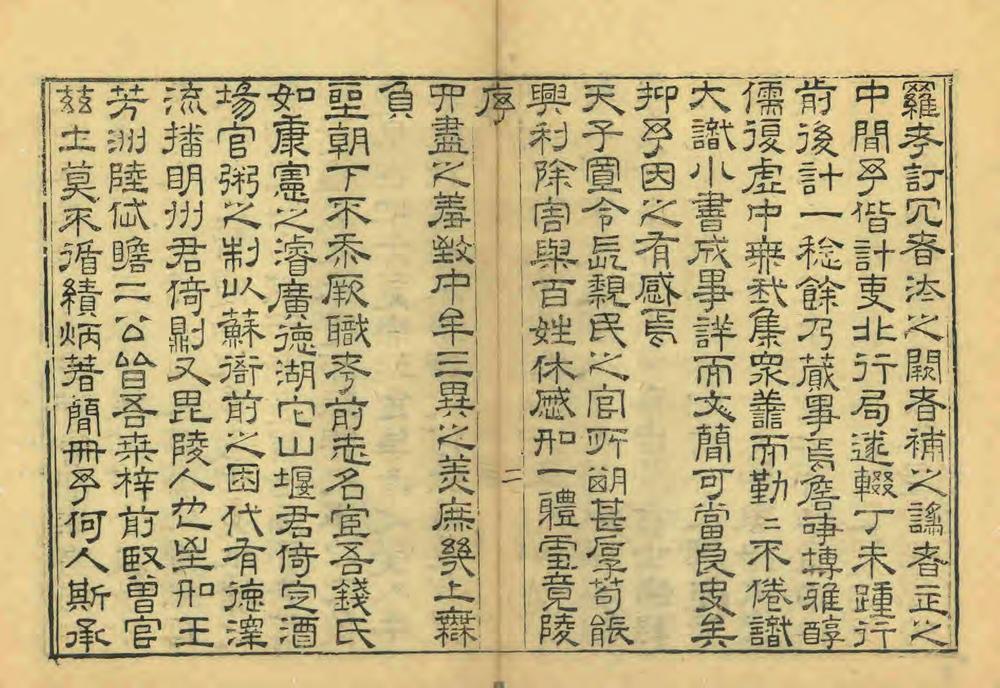 羅考訂冗者汰之闕者補之譌者正之
中間予偕計吏北行局遂輟丁未踵行
前後計一稔餘乃蕆事焉詹博雅醇
儒復虛中無我集衆善而勤二不倦識
大識小書成事詳而文簡可當良史矣
抑予因之有感焉
天子寘令長親民之官所期甚厚苟能
興利除害與百姓休慼如一體雪竟陵
序 二
卵盡之羞致中牟三異之美庶幾上無
負
聖朝下不忝厥職考前志名宦吾錢氏
如康憲之濬廣德湖它山堰君倚定酒
場官粥之制以蘇衙前之困代有德澤
流播明州君倚則又毘陵人也至如王
芳洲陸岱瞻二公皆吾桑梓前臤曾官
茲土莫不循績炳著簡冊予何人斯承